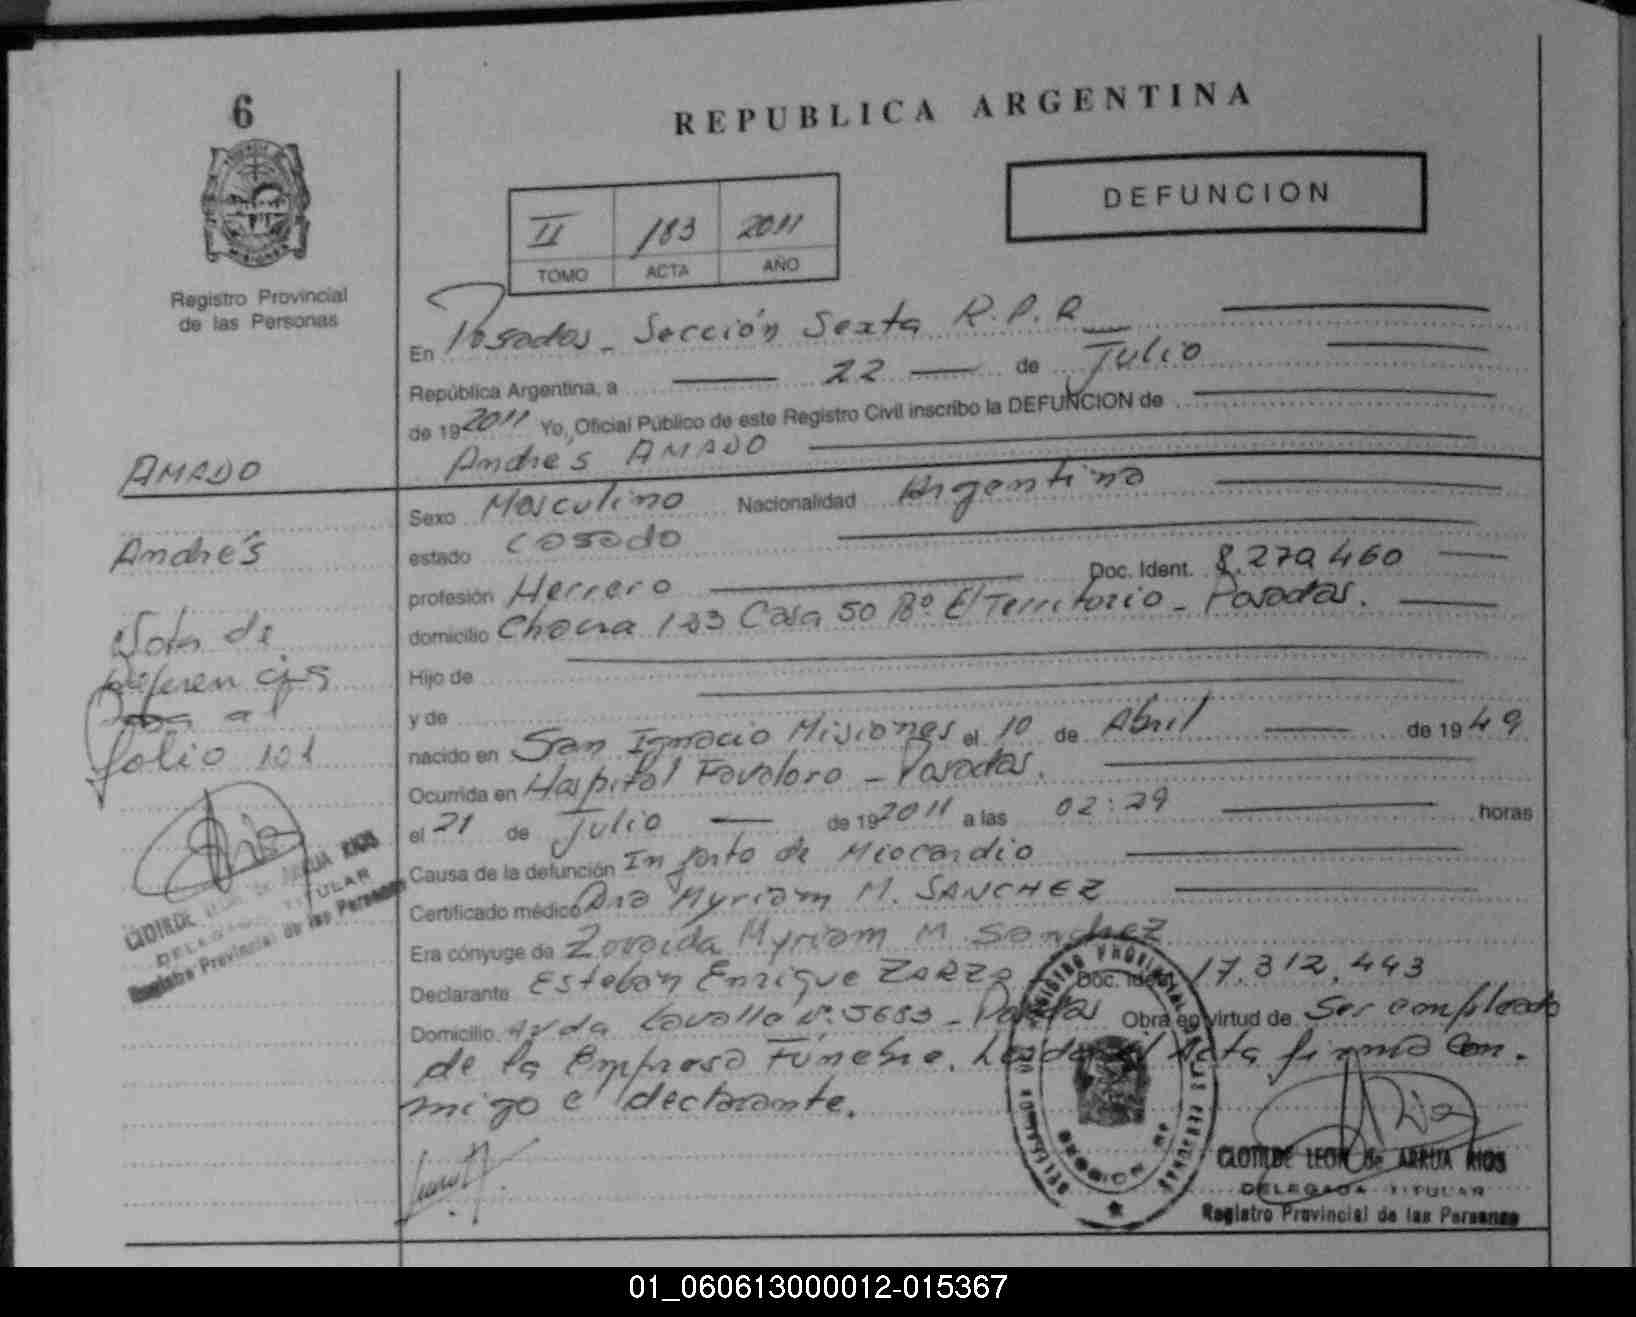 6
REPUBLICA ARGENTINA
DEFUNCION
II 183 2011
TOMO ACTA AÑO
Registro Provincial
de las Personas
En Posadas - Sección Sexta R.P.P.
República Argentina, a 22 de Julio
de 19 2011 Yo, Oficial Público de este Registro Civil inscribo la DEFUNCION de
Andrés AMADO
AMADO
Sexo Masculino Nacionalidad Argentina
Andrés
estado Casado
profesión Herrero Doc. Ident. 8.279.460
domicilio 183 Casa 50 Bº El Territorio - Posadas.
Nota de
Referencias
al
folio 101
Hijo de
y de
nacido en San Ignacio Misiones el 10 de Abril de 19 49
Ocurrida en Hospital Favaloro - Posadas.
el 21 de Julio de 19 2011 a las 02:29 horas
Causa de la defunción Infarto de Miocardio
Certificado médico Dra Myriam M. SANCHEZ
Era cónyuge de Zoraida Myriam M. Sanchez
Declarante Esteban Enrique Doc. Ident. 17.312.443
Domicilio Avda - Posadas Obra en virtud de Ser empleado
de la Empresa Fúnebre. Leída el Acta firma Con-
migo el declarante.
CLOTILDE LEON de ARRUA RIOS
DELEGADA TITULAR
Registro Provincial de las Personas
CLOTILDE LEON DE ARRUA RIOS
DELEGADA TITULAR
Registro Provincial de las Personas
01_060613000012-015367